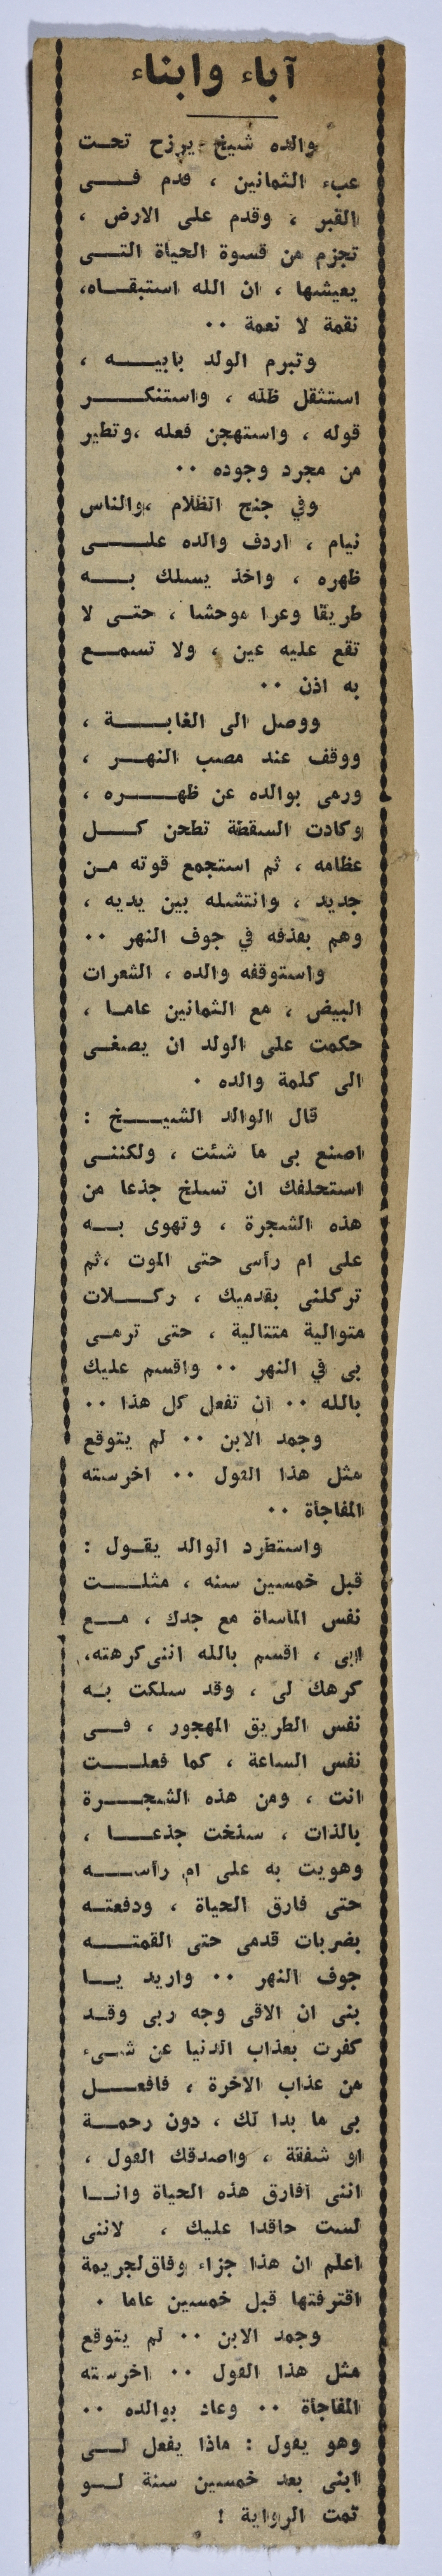 آباء وابناء
والده شيخ يرزح تحت
عبء الثمانين ، قدم فى
القبر ، وقدم على الارض ،
تجزم من قسوة الحياة التى
يعيشها ، ان الله استبقاه،
نقمة لا نعمة ٠٠
وتبرم الولد بابيه ،
استثقل ظله ، واستنكر
قوله ، واستهجن فعله ،وتطير
من مجرد وجوده ٠٠
وفي جنح الظلام ،والناس
نيام ، اردف والده على
ظهره ، واخذ يسلك به
طريقا وعرا موحشا ، حتى لا
تقع عليه عين ، ولا تسمع
به اذن ٠٠
ووصل الى الغابة ،
ووقف عند مصب النهر ،
ورمى بوالده عن ظهره ،
وكادت السقطة تطحن كل
عظامه ، ثم استجمع قوته من
جديد ، وانتشله بين يديه ،
وهم بقذفه في جوف النهر ٠٠
واستوقفه والده ، الشعرات
البيض ، مع الثمانين عاما ،
حكمت على الولد ان يصغى
الى كلمة والده ٠
قال الوالد الشيخ :
اصنع بى ما شئت ، ولكننى
استحلفك ان تسلخ جذعا من
هذه الشجرة ، وتهوى به
على ام رأسى حتى الموت ،ثم
تركلنى بقدميك ، ركلات
متوالية متتالية ، حتى ترمى
بى في النهر ٠٠ واقسم عليك
بالله ٠٠ ان تفعل كل هذا ٠٠
وجمد الابن ٠٠ لم يتوقع
مثل هذا القول ٠٠ اخرسته
المفاجأة ٠٠
واستطرد الوالد يقول :
قبل خمسين سنه ، مثلت
نفس المأساة مع جدك ، مع
ابى ، اقسم بالله اننى كرهته،
كرهك لى ، وقد سلكت به
نفس الطريق المهجور ، فى
نفس الساعة ، كما فعلت
انت ، ومن هذه الشجرة
بالذات ، سلخت جذعا ،
وهويت به على ام رأسه
حتى فارق الحياة ، ودفعته
بضربات قدمى حتى القمته
جوف النهر ٠٠ واريد يا
بنى ان الاقى وجه ربى وقد
كفرت بعذاب الدنيا عن شىء
من عذاب الاخرة ، فافعل
بى ما بدا لك ، دون رحمة
او شفقة ، واصدقك القول ،
اننى افارق هذه الحياة وانا
لست حاقدا عليك ، لاننى
اعلم ان هذا جزاء وفاق لجريمة
اقترفتها قبل خمسين عاما ٠
وجمد الابن ٠٠ لم يتوقع
مثل هذا القول ٠٠ اخرسته
المفاجأة ٠٠ وعاد بوالده ٠٠
وهو يقول : ماذا يفعل لى
ابنى بعد خمسين سنة لو
تمت الرواية !